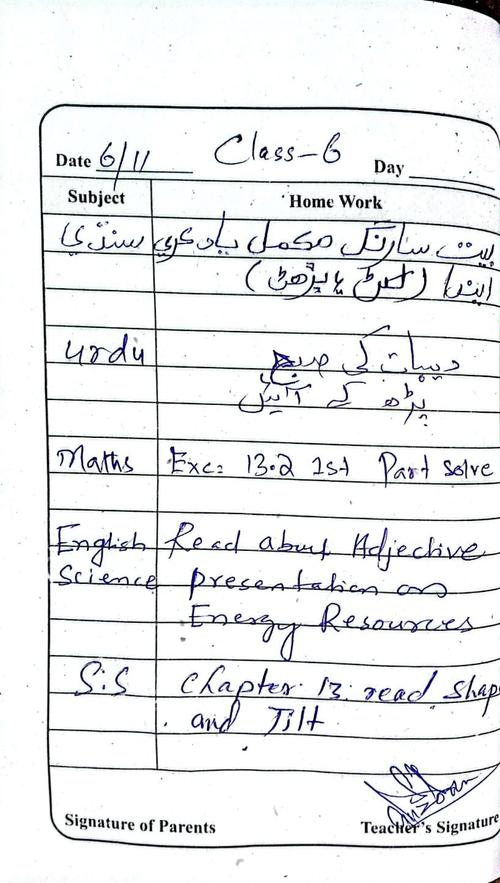 Class-6
Date 6/11 Day
Subject Home Work
سنڌي بيت سارنگ مكمل ياد ڪري
ايندا (لکڻ پڙهڻ)
urdu دیہات کی صبح
پڑھ کے آئیں
Maths Exc: 13.2 1st Part solve
English Read about Adjective
Science presentation on
Energy Resources
S.S Chapter 13 read shap
and Tilt
Signature of Parents Teacher's Signature